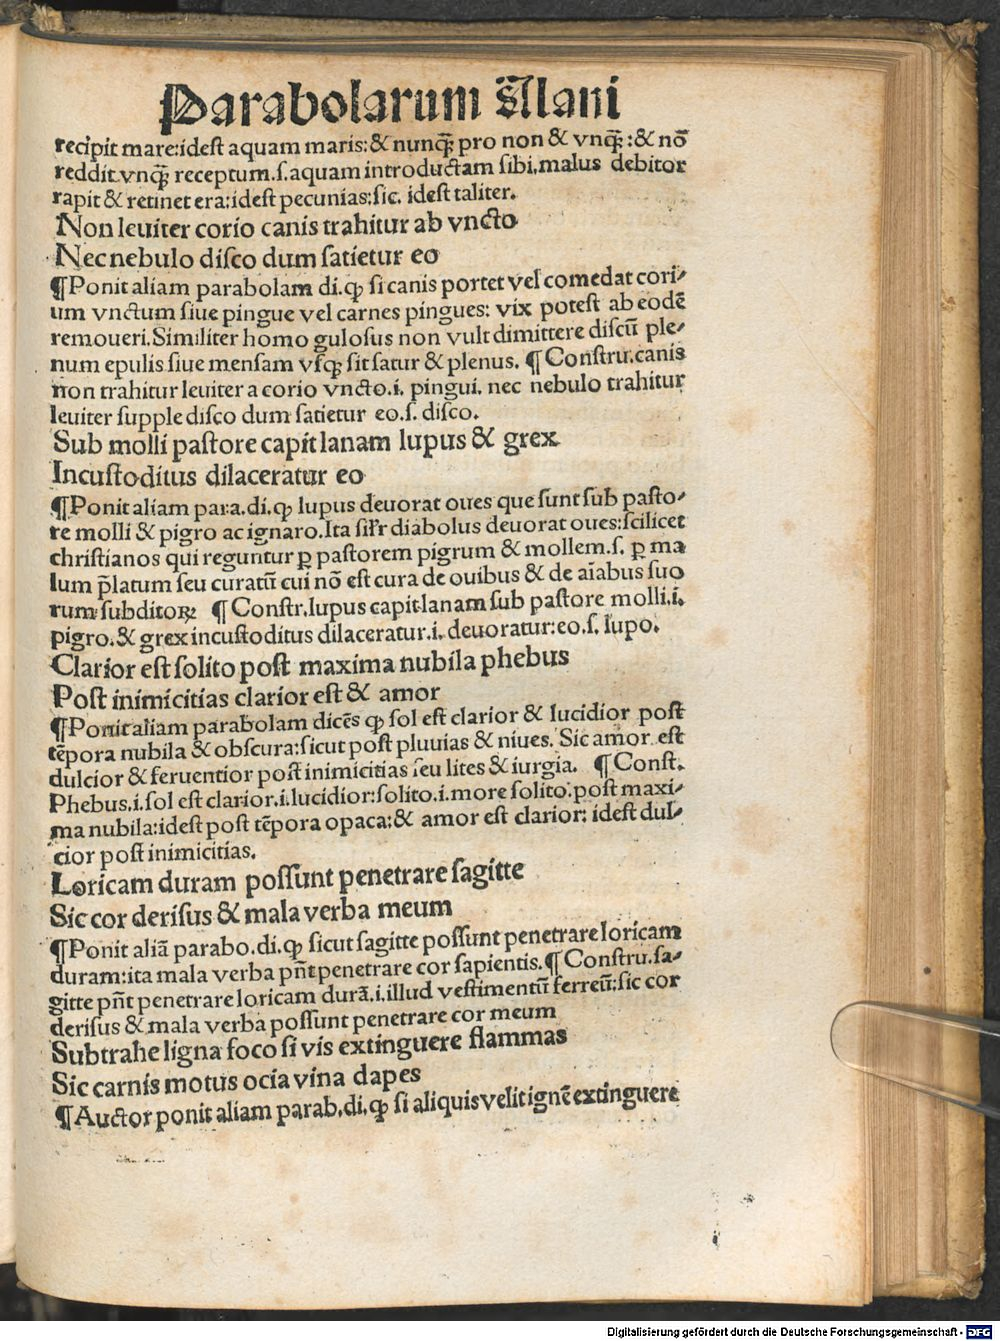 Parabolarum Alani
recipit mare:idest aquam maris:& nunqȝ pro non & vnqȝ:& nō
reddit.vnqȝ receptum.s.aquam introductam sibi.malus debitor
rapit & retinet era:idest pecunias:sic. idest taliter.
Non leuiter corio canis trahitur ab vncto
Nec nebulo disco dum satietur eo
¶Ponit aliam parabolam di.ꝙ si canis portet vel comedat cori-
um vnctum siue pingue vel carnes pingues: vix potest ab eodē
remoueri.Similiter homo gulosus non vult dimittere discū ple-
num epulis siue mensam vsqȝ sit satur & plenus. ¶ Constru.canis
non trahitur leuiter a corio vncto.i. pingui. nec nebulo trahitur
leuiter supple disco dum satietur eo.s. disco.
Sub molli pastore capit lanam lupus & grex
Incustoditus dilaceratur eo
¶Ponit aliam para.di.ꝙ lupus deuorat oues que sunt sub pasto-
re molli & pigro ac ignaro.Ita sil̄r diabolus deuorat oues:scilicet
christianos qui reguntur ꝑ pastorem pigrum & mollem.s. ꝑ ma
lum p̄latum seu curatū cui nō est cura de ouibus & de aīabus suo
rum subditoꝝ ¶ Constr.lupus capit lanam sub pastore molli.i.
pigro.& grex incustoditus dilaceratur.i. deuoratur:eo.s. lupo.
Clarior est solito post maxima nubila phebus
Post inimicitias clarior est & amor
¶Ponit aliam parabolam dicēs ꝙ sol est clarior & lucidior post
tēpora nubila & obscura:sicut post pluuias & niues. Sic amor est
dulcior & feruentior post inimicitias seu lites & iurgia. ¶ Const.
Phebus.i.sol est clarior.i.lucidior:solito.i.more solito:post maxi-
ma nubila:idest post tēpora opaca:& amor est clarior: idest dul-
cior post inimicitias.
Loricam duram possunt penetrare sagitte
Sic cor derisus & mala verba meum
¶Ponit aliā parabo.di.ꝙ sicut sagitte possunt penetrare loricam
duram:ita mala verba pn̄t penetrare cor sapientis.¶ Constru.sa-
gitte pn̄t penetrare loricam durā.i.illud vestimentū ferreū:sic cor
derisus & mala verba possunt penetrare cor meum
Subtrahe ligna foco si vis extinguere flammas
Sic carnis motus ocia vina dapes
¶Auctor ponit aliam parab.di.ꝙ si aliquis velit ignē extinguere
Digitalisierung gefördert durch die Deutsche Forschungsgemeinschaft - DFG